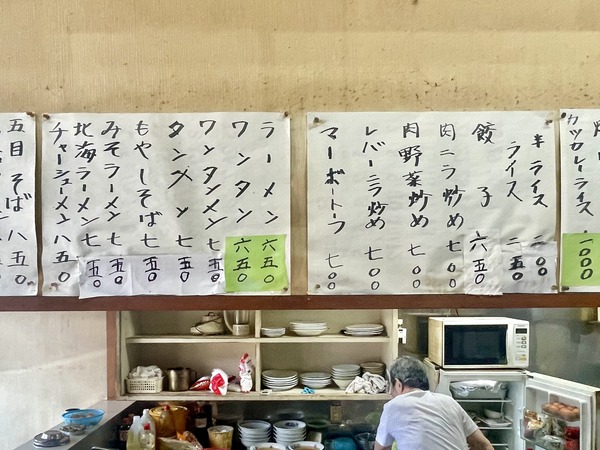 カツカレーライス 一〇〇〇
半ライス 二〇〇
ライス 二五〇
餃子 六五〇
肉ニラ炒め 七〇〇
肉野菜炒め 七〇〇
レバーニラ炒め 七〇〇
マーボートーフ 七〇〇
ラーメン 六五〇
ワンタン 六五〇
ワンタンメン 七五〇
タンメン 七五〇
もやしそば 七五〇
みそラーメン 七五〇
北海ラーメン 七五〇
チャーシューメン 八五〇
五目そば 八五〇